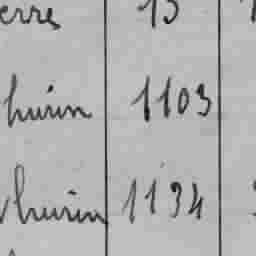 erre 13
hurin 1103
hurin 1134